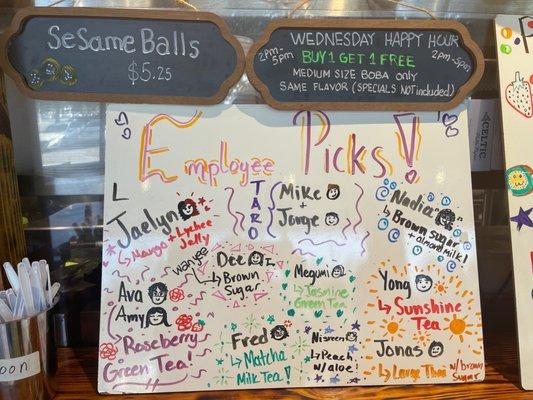 Sesame Balls
$5.25
WEDNESDAY HAPPY HOUR
2PM-5PM
BUY 1 GET 1 FREE
2PM-5PM
MEDIUM SIZE BOBA ONLY
SAME FLAVOR (SPECIALS NOT included)
Employee Picks!
L
Jaelyn
Mango + Lychee
Jelly
TARO
Mike
+
Jorge
Nadia
Brown Sugar
+ almond milk!
wangee
Dee
Brown
Sugar
Megumi
Jasmine
Green Tea
Yong
Sunshine
Tea
Ava
Amy
Roseberry
Green Tea!
Fred
Matcha
Milk Tea!
Nisreen
Peach
w/ aloe!
Jonas
Large Thai
w/ brown
Sugar
CELTIC
oon